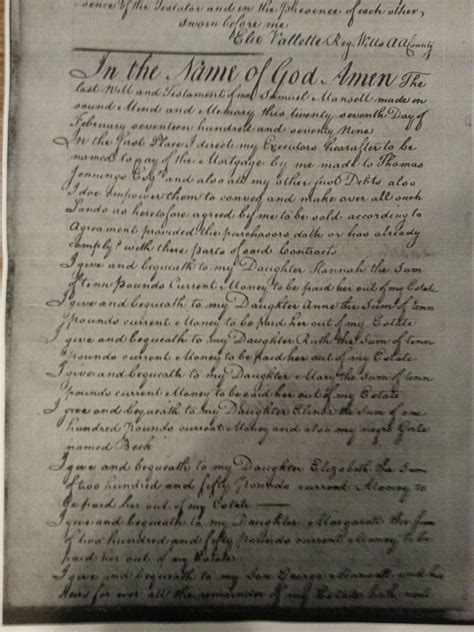 sence of the Testator and in the Presence of each other,
sworn before me
Elie Vallette Reg. Wills A A County
In the Name of God Amen The
last Will and Testament of me Samuel Mansell made in
sound Mind and Memory this twenty seventh Day of
February seventeen hundred and seventy Nine
In the first Place I direct my Executors hereafter to be
named to pay of the Mortgage by me made to Thomas
Jennings Esqr and also all my other just Debts also
I doe empower them to convey and make over all such
Lands as heretofore agreed by me to be sold according to
Agreement provided the purchasors doth or has already
comply'd with there parts of said Contracts
I give and bequeath to my Daughter Hannah the Sum
of tenn Pounds Current Money to be paid her out of my Estate
I give and bequeath to my Daughter Anne the Sum of tenn
pounds current Money to be paid her out of my Estate
I give and bequeath to my Daughter Ruth the Sum of tenn
pounds current Money to be paid her out of my Estate
I give and bequeath to my Daughter Mary the Sum of tenn
pounds current Money to be paid her out of my Estate
I give and bequeath to my Daughter Elinor the Sum of one
hundred Pounds current Money and also my negro Girle
named Beck
I give and bequeath to my Daughter Elizabeth the Sum
of two hundred and fifty Pounds current Money to
be paid her out of my Estate
I give and bequeath to my Daughter Margarett the Sum
of two hundred and fifty pounds current Money to be
paid her out of my Estate
I give and bequeath to my Son George Mansell and his
Heirs for ever all the remainder of my Estate both